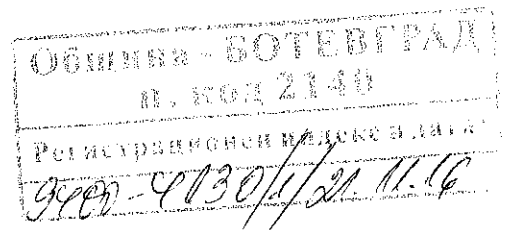 Община - БОТЕВГРАД
п. код 2140
Регистрационен индекс и дата
9400-4130/1/21.11.16